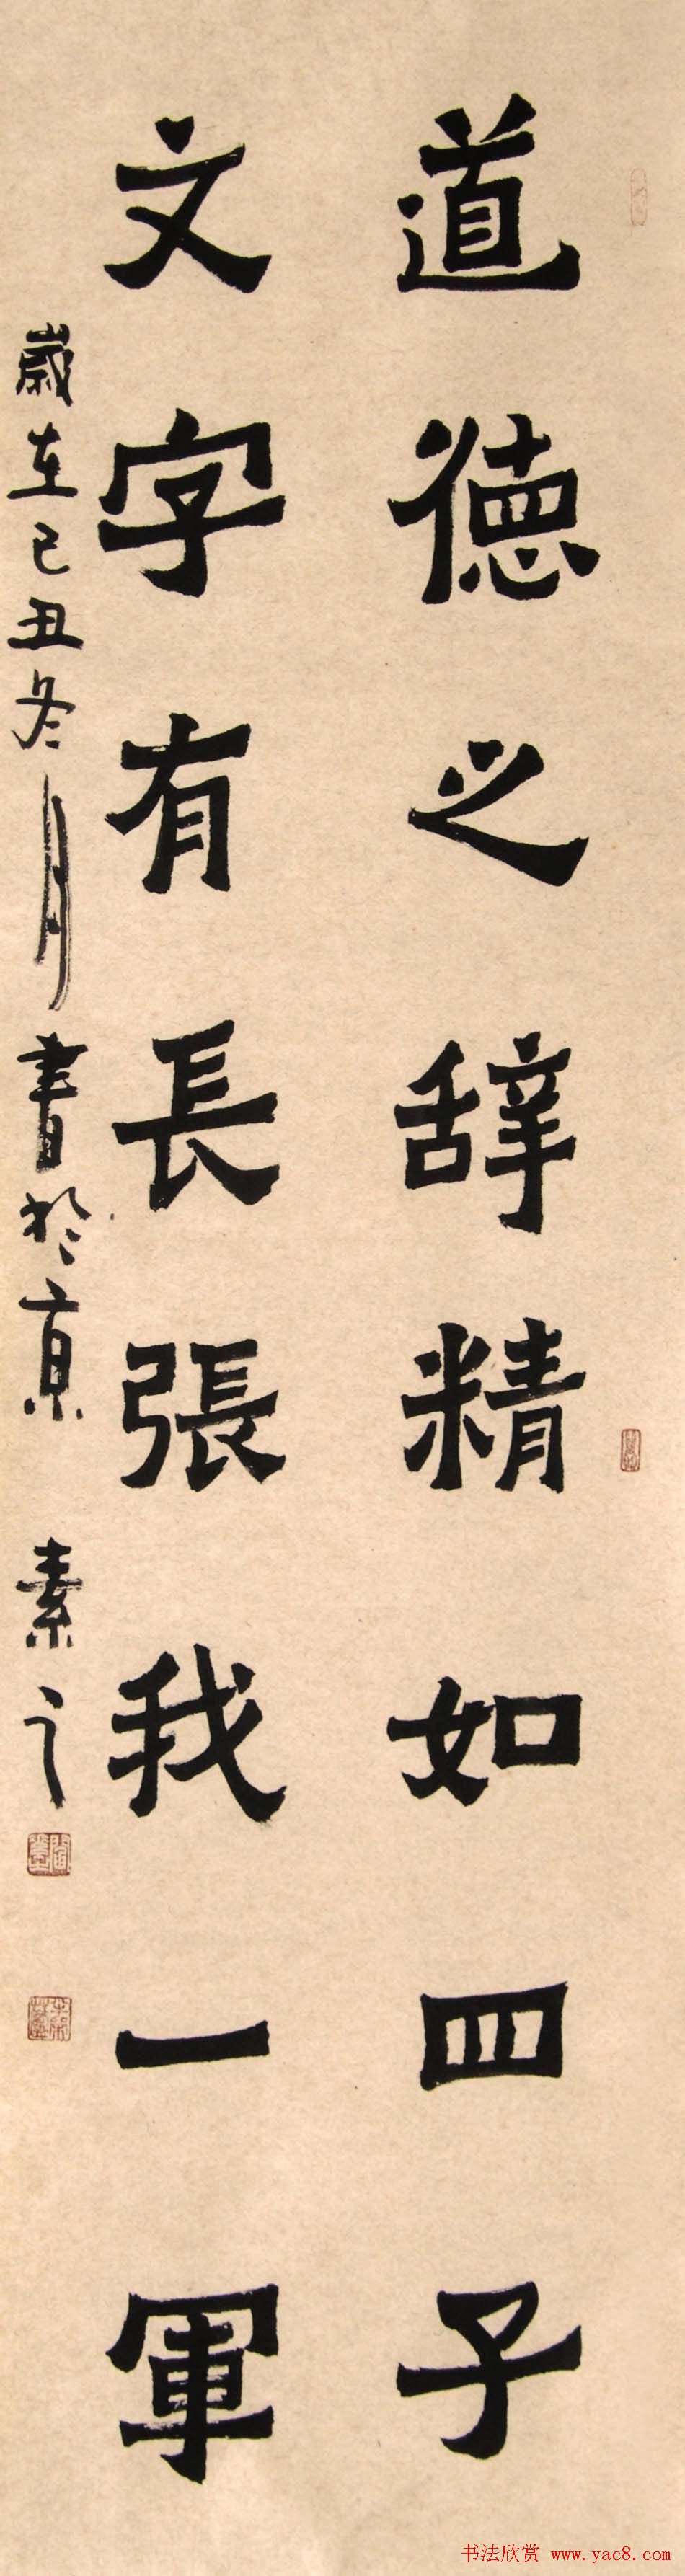 道德之辞精如四子
文字有長長張我一軍
歲在己丑冬月書於京 素之
书法欣赏 www.yac8.com